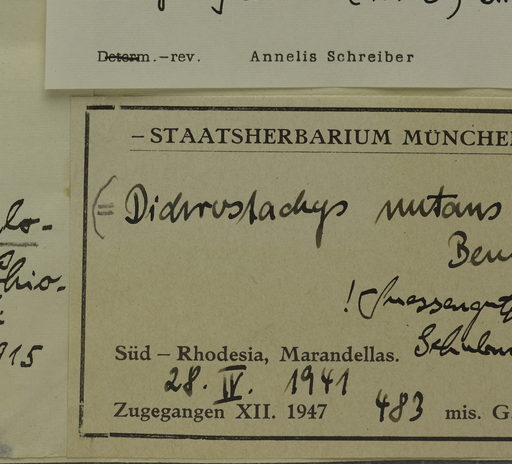 Determ.-rev. Annelis Schreiber
- STAATSHERBARIUM MÜNCHE
(= Dichrostachys nutans
Ben
Süd – Rhodesia, Marandellas.
28. IV. 1941
Zugegangen XII. 1947 483 mis. G.
lo-
hio-
915